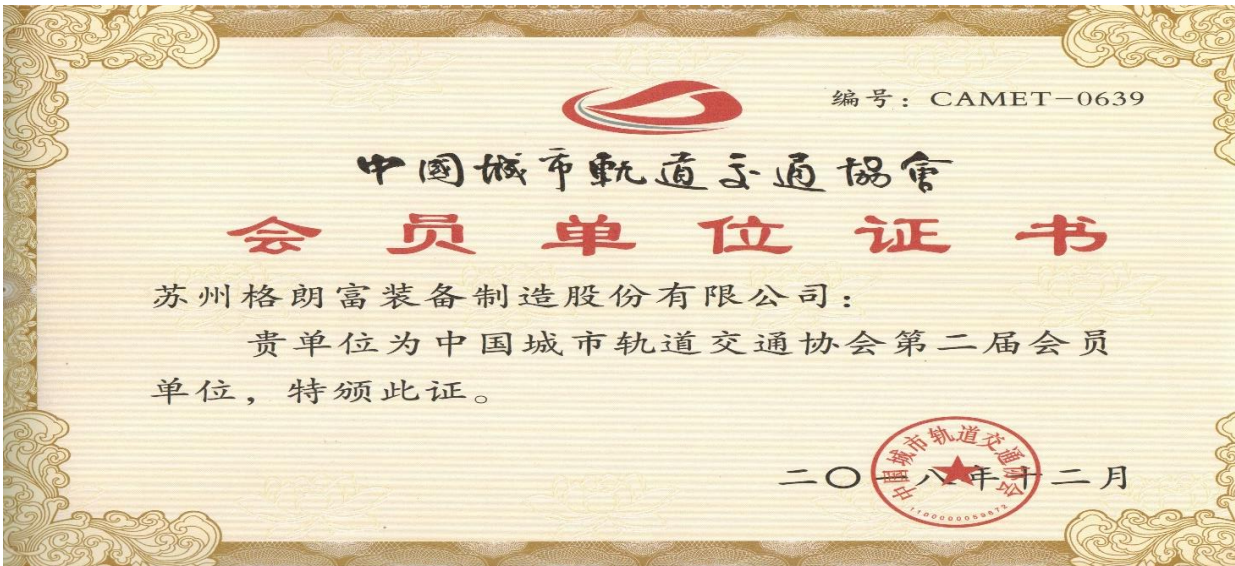 编号：CAMET-0639
中國城市軌道交通協會
会员单位证书
苏州格朗富装备制造股份有限公司：
贵单位为中国城市轨道交通协会第二届会员
单位，特颁此证。
中国城市轨道交通协会
二〇一八年十二月